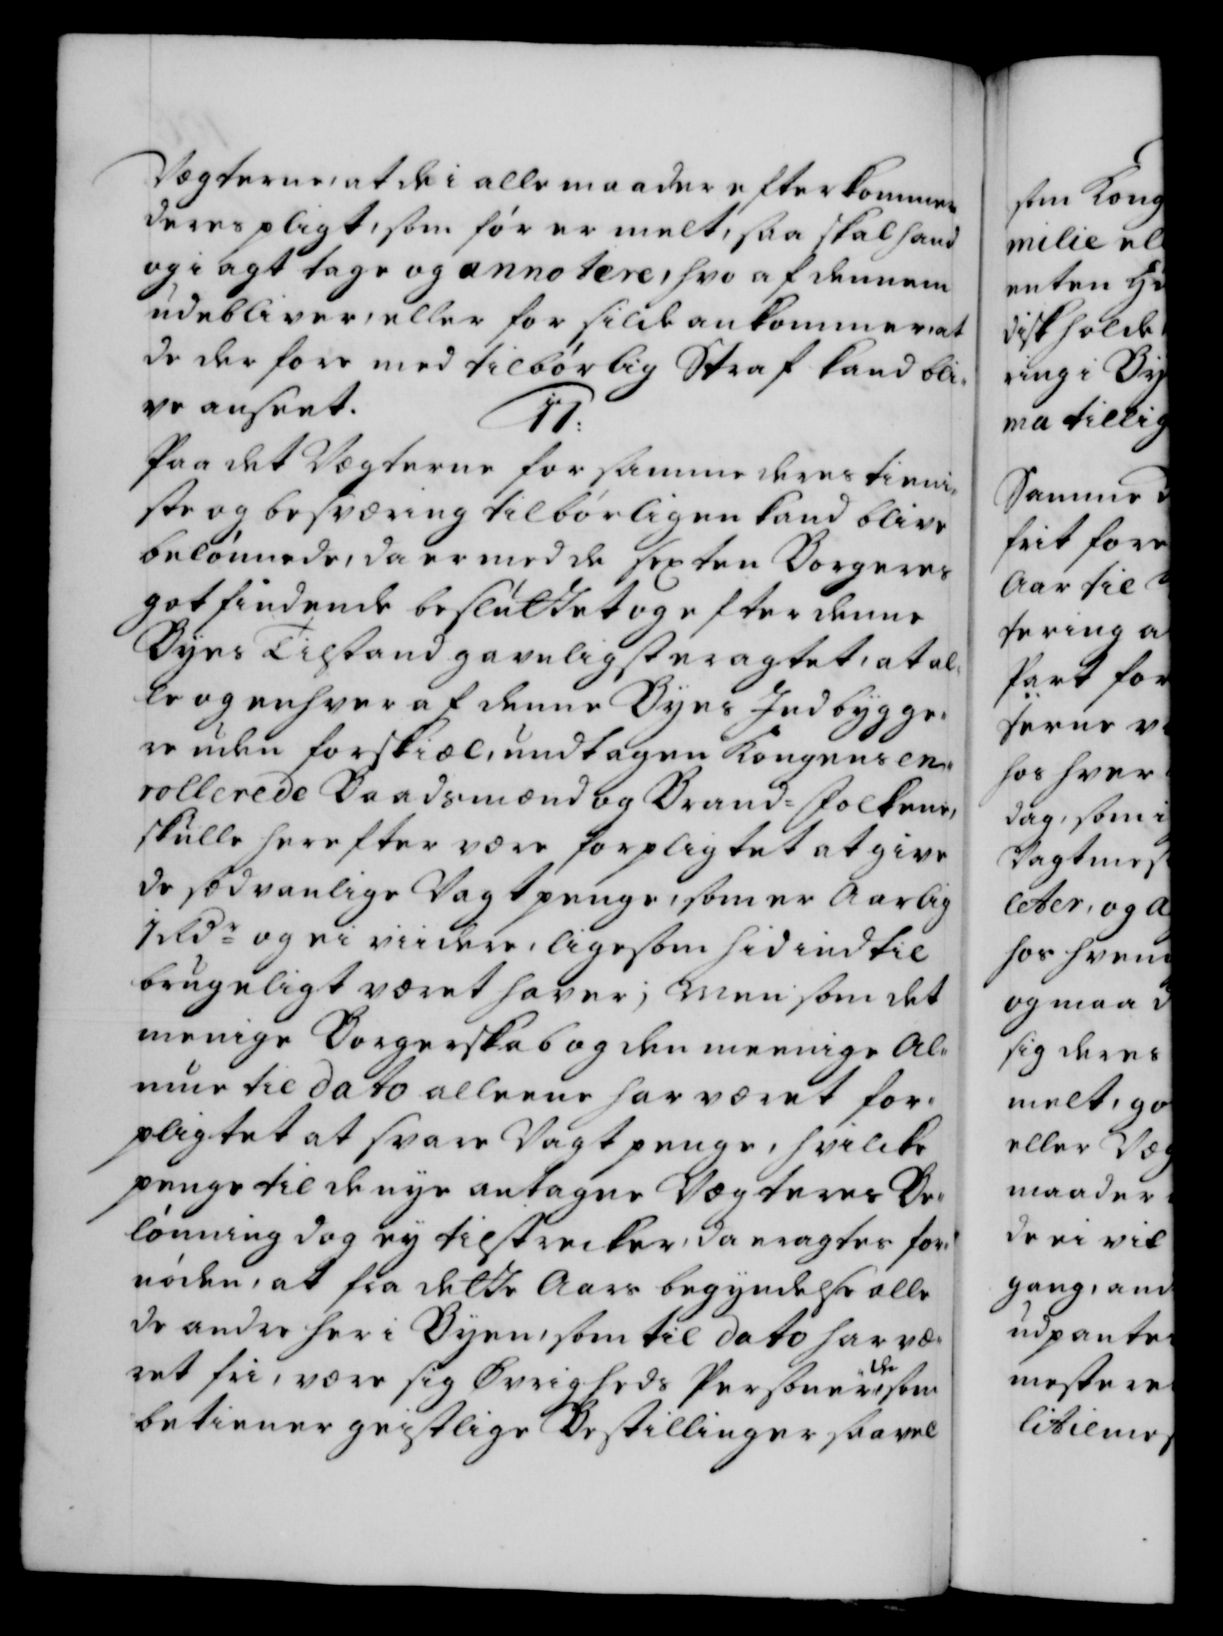 Vægterne, at de i alle maader efterkommer
deres pligt, som før er melt, saa skal hand
og i agt tage og annotere, hvo af dennem
udebliver, eller for silde ankommer, at
de derfore med tilbørlig Straf kand bli-
ve anseet.
11:
Paa det Vægterne for samme deres tieni-
ste og besværing tilbørligen kand blive
belønnede, da er med de sexten Borgeres
gotfindende besluttet og efter denne
Byes Tilstand gaveligst eragtet, at al-
le og enhver af denne Byes Indbygge-
re uden forskiæl, undtagen Kongens en-
rollerede Baadsmænd og Brand-Folkene,
skulle herefter være forpligtet at give
de sædvanlige Vagtpenge, som er Aarlig
1 Rdr og ei viidere, ligesom hidindtil
brugeligt været haver; Men som det
menige Borgerskab og den meenige Al-
mue til dato alleene har været for-
pligtet at svare Vagtpenge, hvilcke
penge til de nye antagne Vægteres Be-
lønning dog ey tilstrecker, da eragtes for-
nøden, at fra dette Aars begyndelse alle
de andre her i Byen, som til dato har væ-
ret fri, være sig Øvrigheds Personer, de som
betiener geistlige Bestillinger saavel
som Kong
milie el
enten H
disk holde
ring i By
ma tillig
Samme
frit fore
Aar til
tering a
Part for
terne v
hos hver
dag, som i
Vagtmest
leter, og a
hos hvem
og maa d
sig deres
melt, go
eller Væg
maader
de ei vil
gang, and
udpante
mestere
litiemes